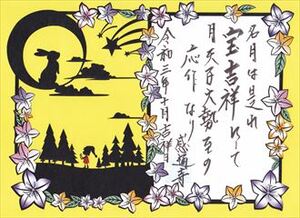 名月は是れ
宝吉祥にして
月天子大勢至の
応作なり
感通寺
令和三年十月吉祥